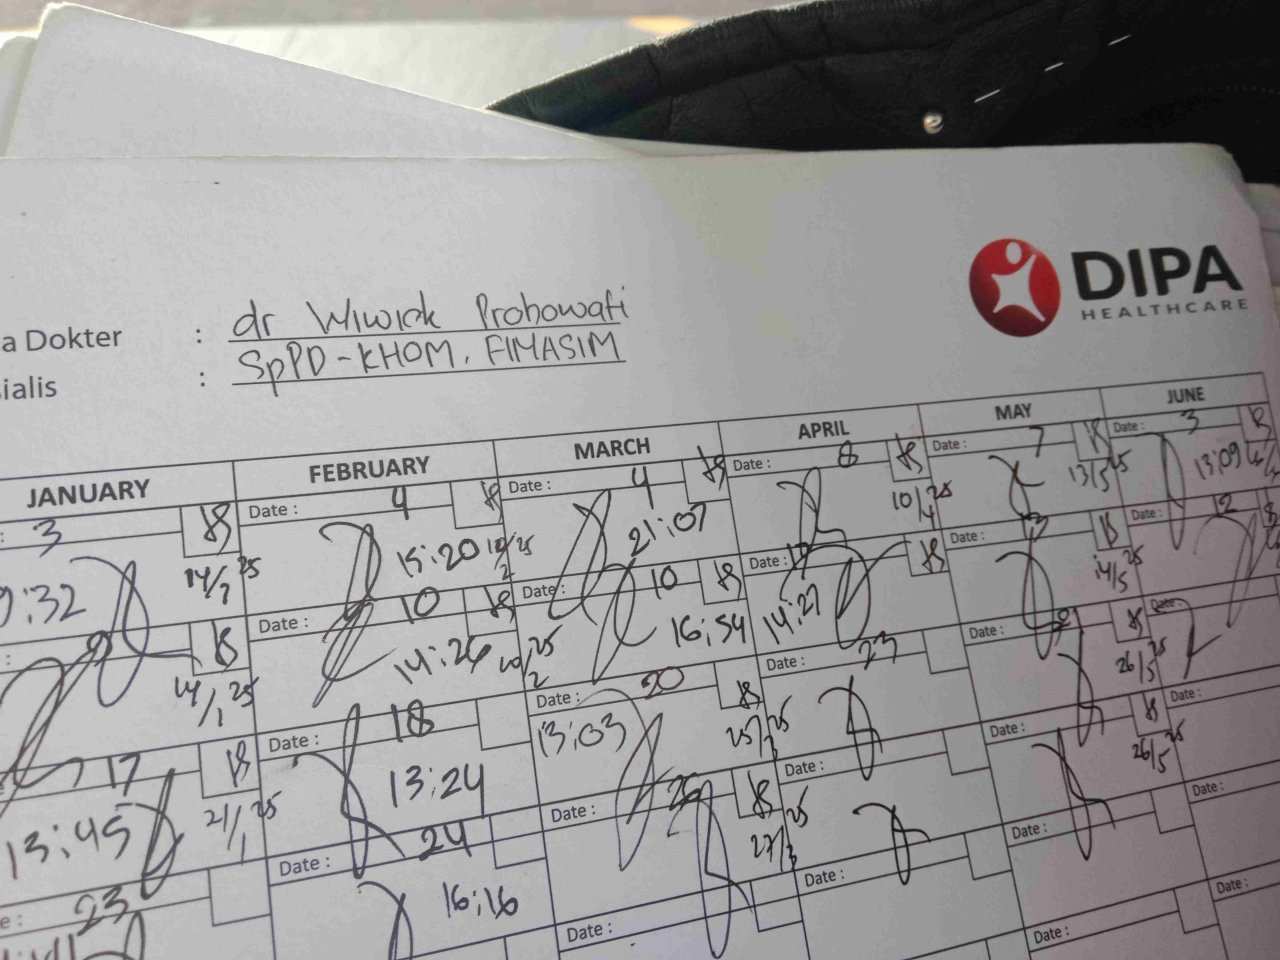 DIPA
HEALTHCARE
a Dokter : dr Wiwick Probowati
ialis : SpPD-KHOM, FIMASIM
JANUARY FEBRUARY MARCH APRIL MAY JUNE
: 3
9:32
14/1 25
: 9
14/1 25
17
13:45
21/1 25
e: 23
Date : 4
15:20
Date : 10
14:26
10/2 25
Date : 18
13:24
Date : 24
16:16
Date : 4
21:07
Date : 10
16:54
Date : 20
13:03
25/3 25
Date :
27/3 25
Date :
Date : 8
10/4 25
Date : 17
14:27
Date : 23
Date :
Date :
Date : 7
13/5 25
Date : 13
14/5 25
Date : 21
26/5 25
Date :
26/5 25
Date :
Date :
Date : 3
13:09
Date : 12
Date :
Date :
Date :
Date :